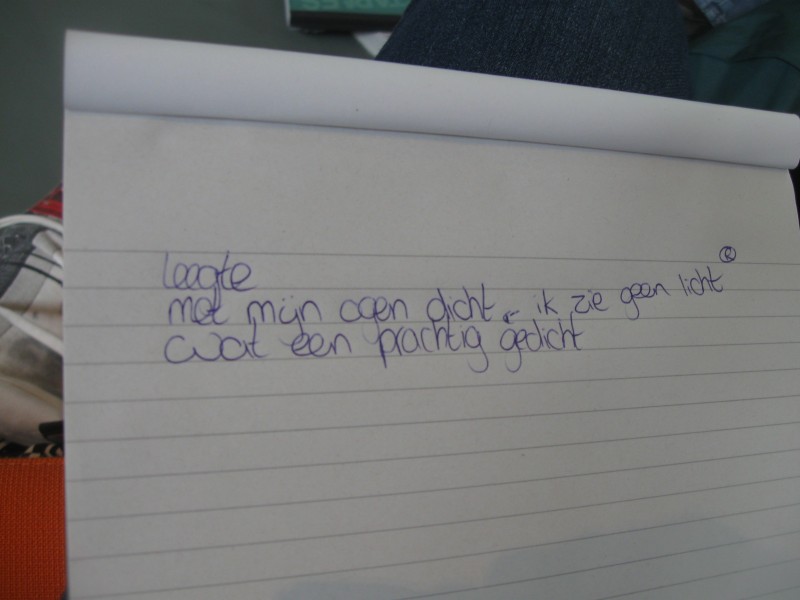 leegte
met mijn ogen dicht, ik zie geen licht ®
wat een prachtig gedicht